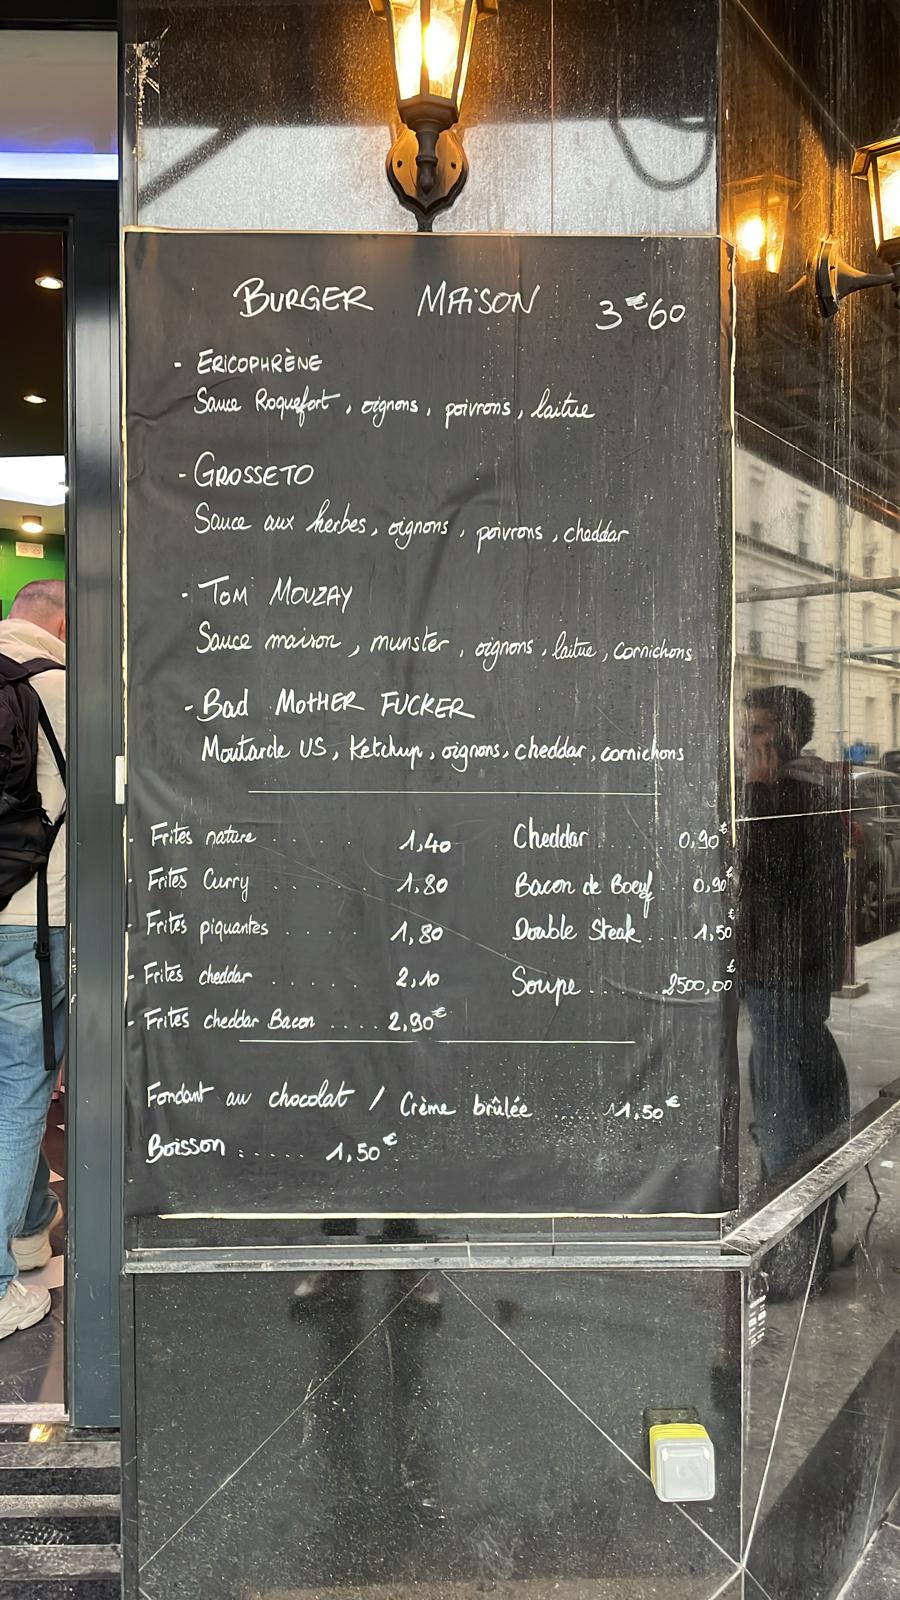 BURGER MAISON 3€60
- ERICOPHRÈNE
Sauce Roquefort, oignons, poivrons, laitue
- GROSSETO
Sauce aux herbes, oignons, poivrons, cheddar
- TOM MOUZAY
Sauce maison, munster, oignons, laitue, cornichons
- Bad MOTHER FUCKER
Moutarde US, Ketchup, oignons, cheddar, cornichons
- Frites nature ..... 1,40
- Frites Curry ..... 1,80
- Frites piquantes ..... 1,80
- Frites cheddar ..... 2,10
- Frites cheddar Bacon .... 2,90€
Cheddar ..... 0,90€
Bacon de Boeuf ... 0,90€
Double Steak .... 1,50€
Soupe ..... 2500,00€
Fondant au chocolat / Crème brûlée .... 1,50€
Boisson : ..... 1,50€